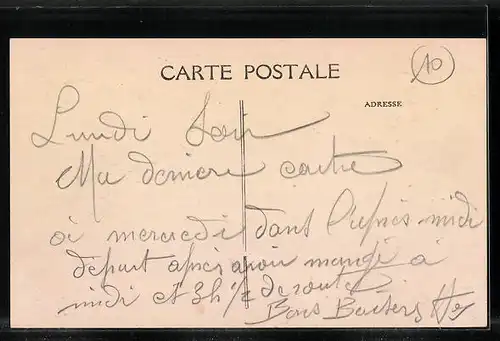 CARTE POSTALE
10
ADRESSE
Lundi Soir
Ma dernière carte
à mercredi dans l'après-midi
départ après avoir mangé à
midi et 3h 1/2 de route
Bons Baisers